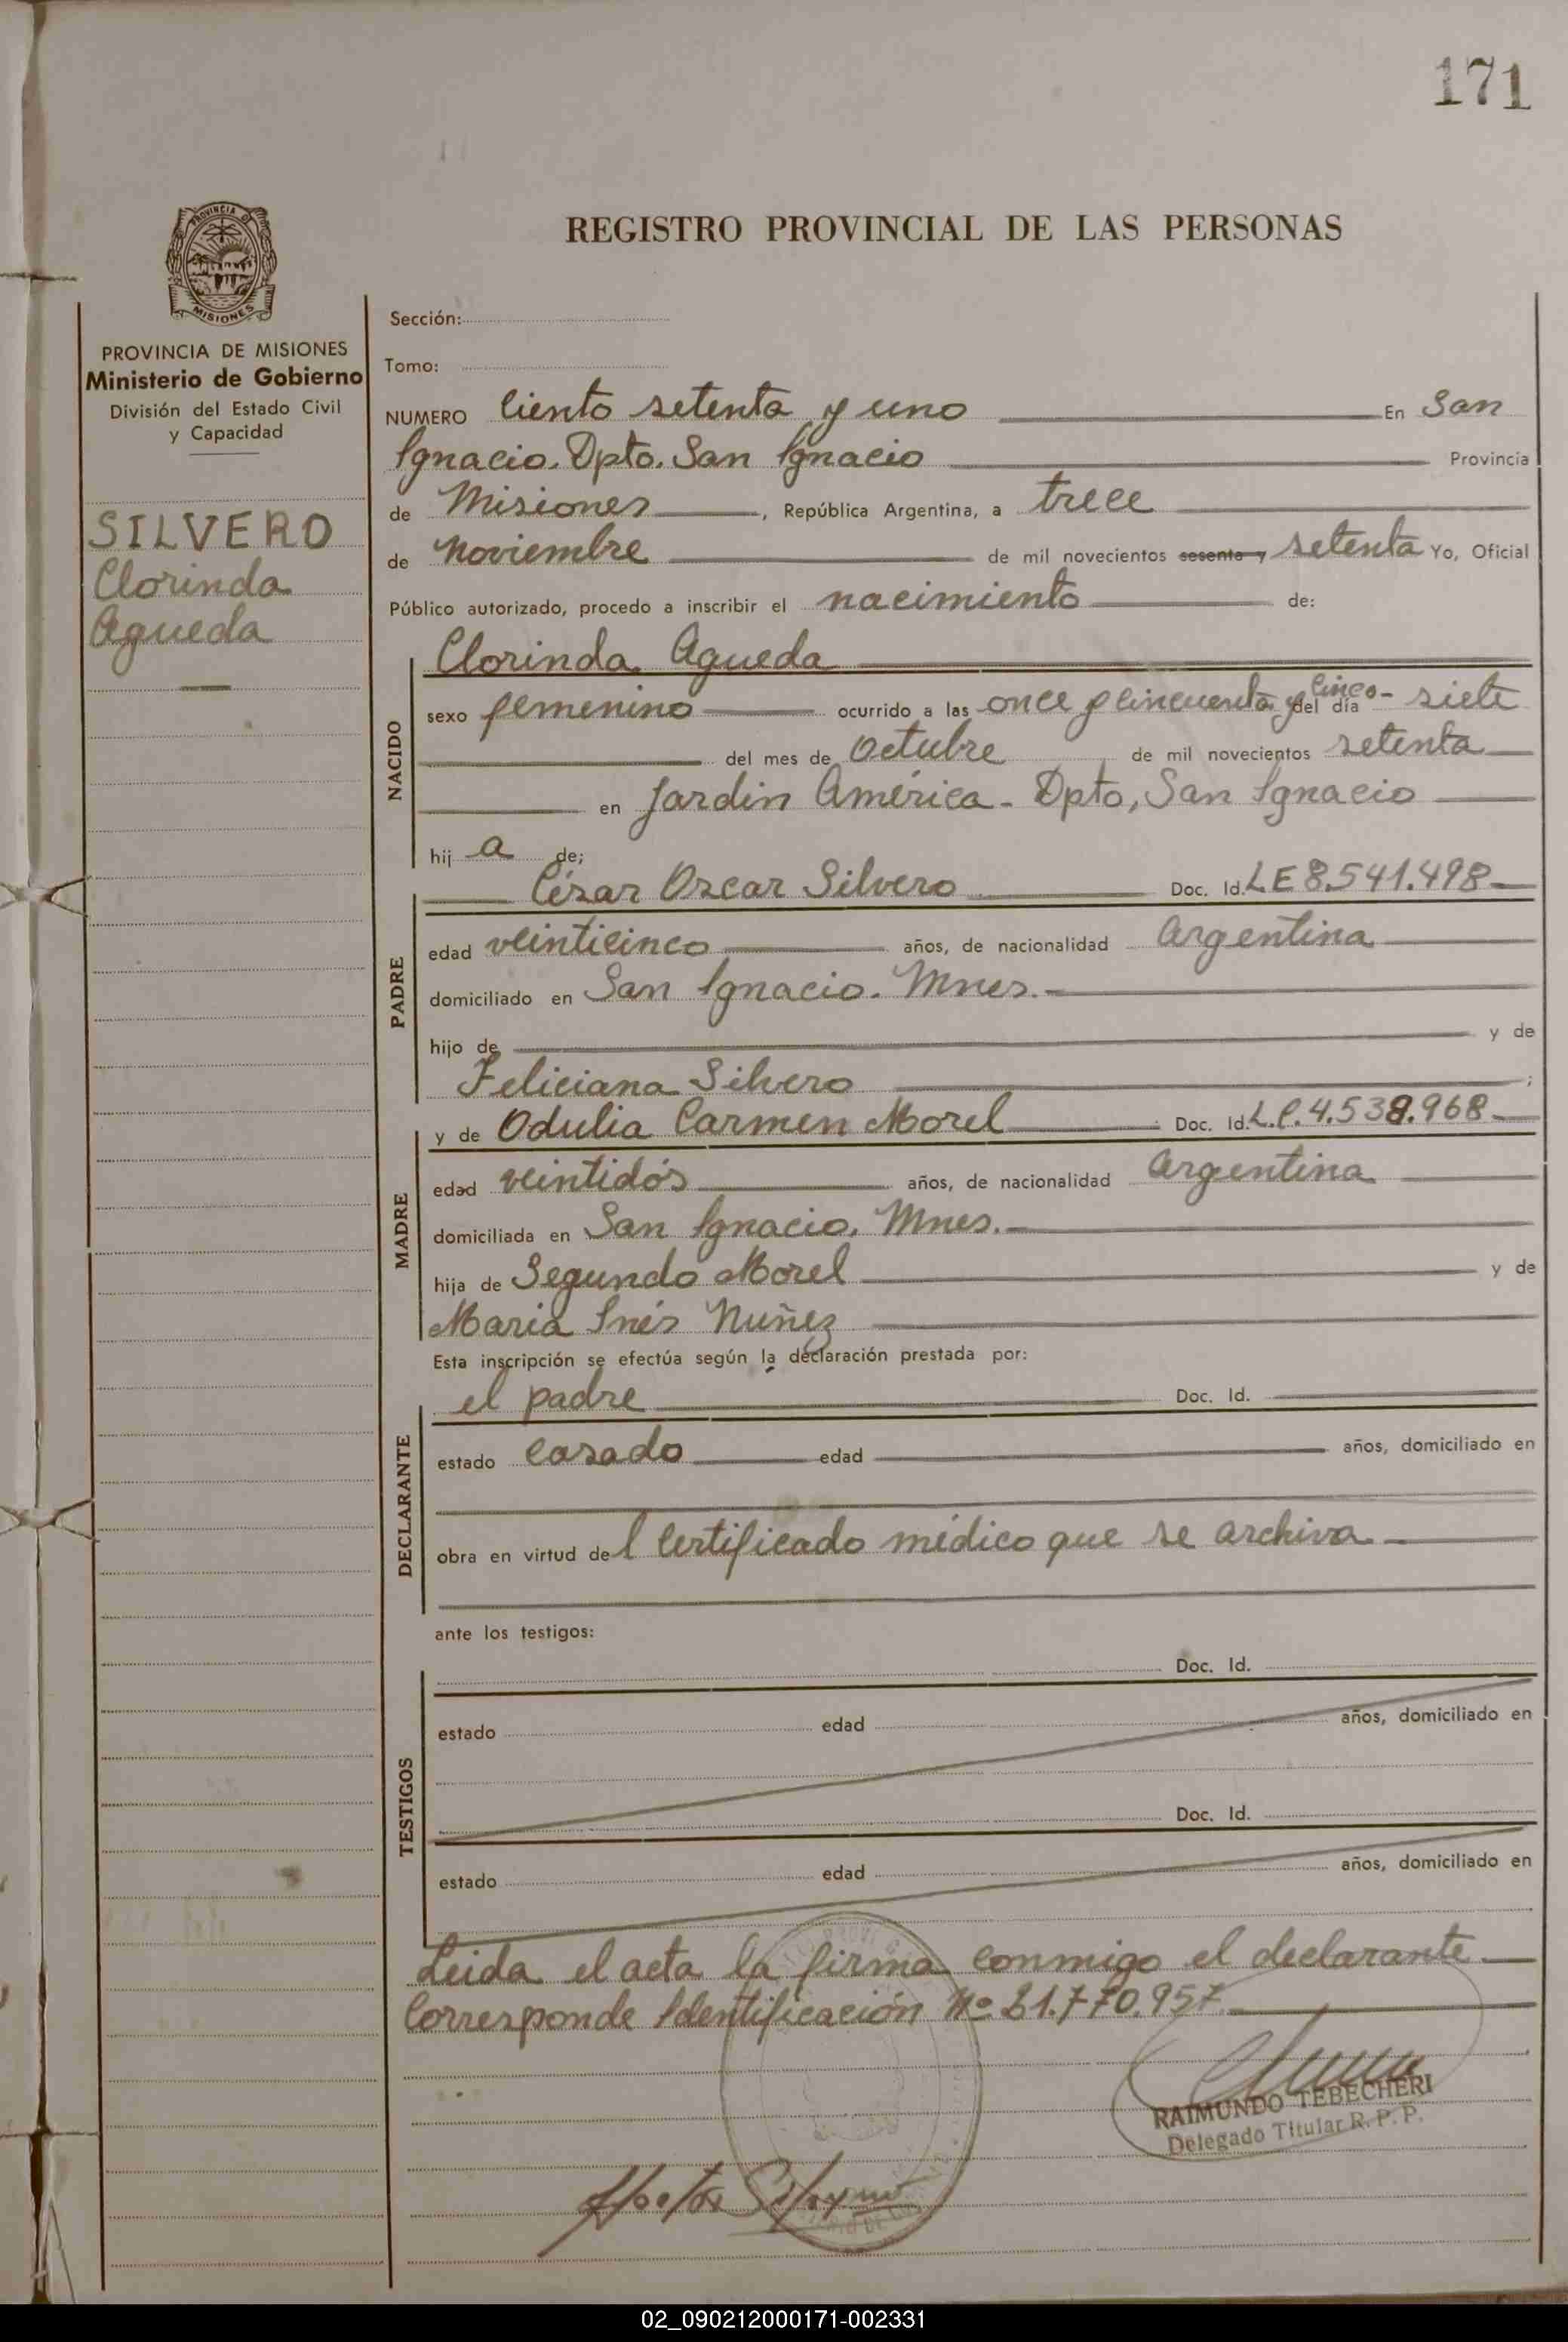 171
REGISTRO PROVINCIAL DE LAS PERSONAS
PROVINCIA DE
MISIONES
PROVINCIA DE MISIONES
Ministerio de Gobierno
División del Estado Civil
y Capacidad
SILVERO
Clorinda
Agueda
Sección:
Tomo:
NUMERO Ciento setenta y uno En San
Ignacio. Dpto. San Ignacio Provincia
de Misiones, República Argentina, a trece
de noviembre de mil novecientos sesenta y setenta Yo, Oficial
Público autorizado, procedo a inscribir el nacimiento de:
NACIDO
Clorinda Agueda
sexo femenino ocurrido a las once y cincuenta y cinco - del día siete
del mes de Octubre de mil novecientos setenta
en Jardin América - Dpto, San Ignacio
hij a de;
PADRE
César Oscar Silvero Doc. Id. L E 8.541.498
edad veinticinco años, de nacionalidad Argentina
domiciliado en San Ignacio. Mnes.
hijo de y de
Feliciana Silvero ;
MADRE
y de Odulia Carmen Morel Doc. Id. L.C. 4.538.968
edad veintidós años, de nacionalidad Argentina
domiciliada en San Ignacio, Mnes.
hija de Segundo Morel y de
Maria Inés Nuñez
Esta inscripción se efectúa según la declaración prestada por:
DECLARANTE
el padre Doc. Id.
estado casado edad años, domiciliado en
obra en virtud del Certificado médico que se archiva
ante los testigos:
TESTIGOS
Doc. Id.
estado edad años, domiciliado en
Doc. Id.
estado edad años, domiciliado en
Leida el acta la firma conmigo el declarante
Corresponde Identificación Nº 21.770.957
RAIMUNDO TEBECHERI
Delegado Titular R. P. P.
02_090212000171-002331